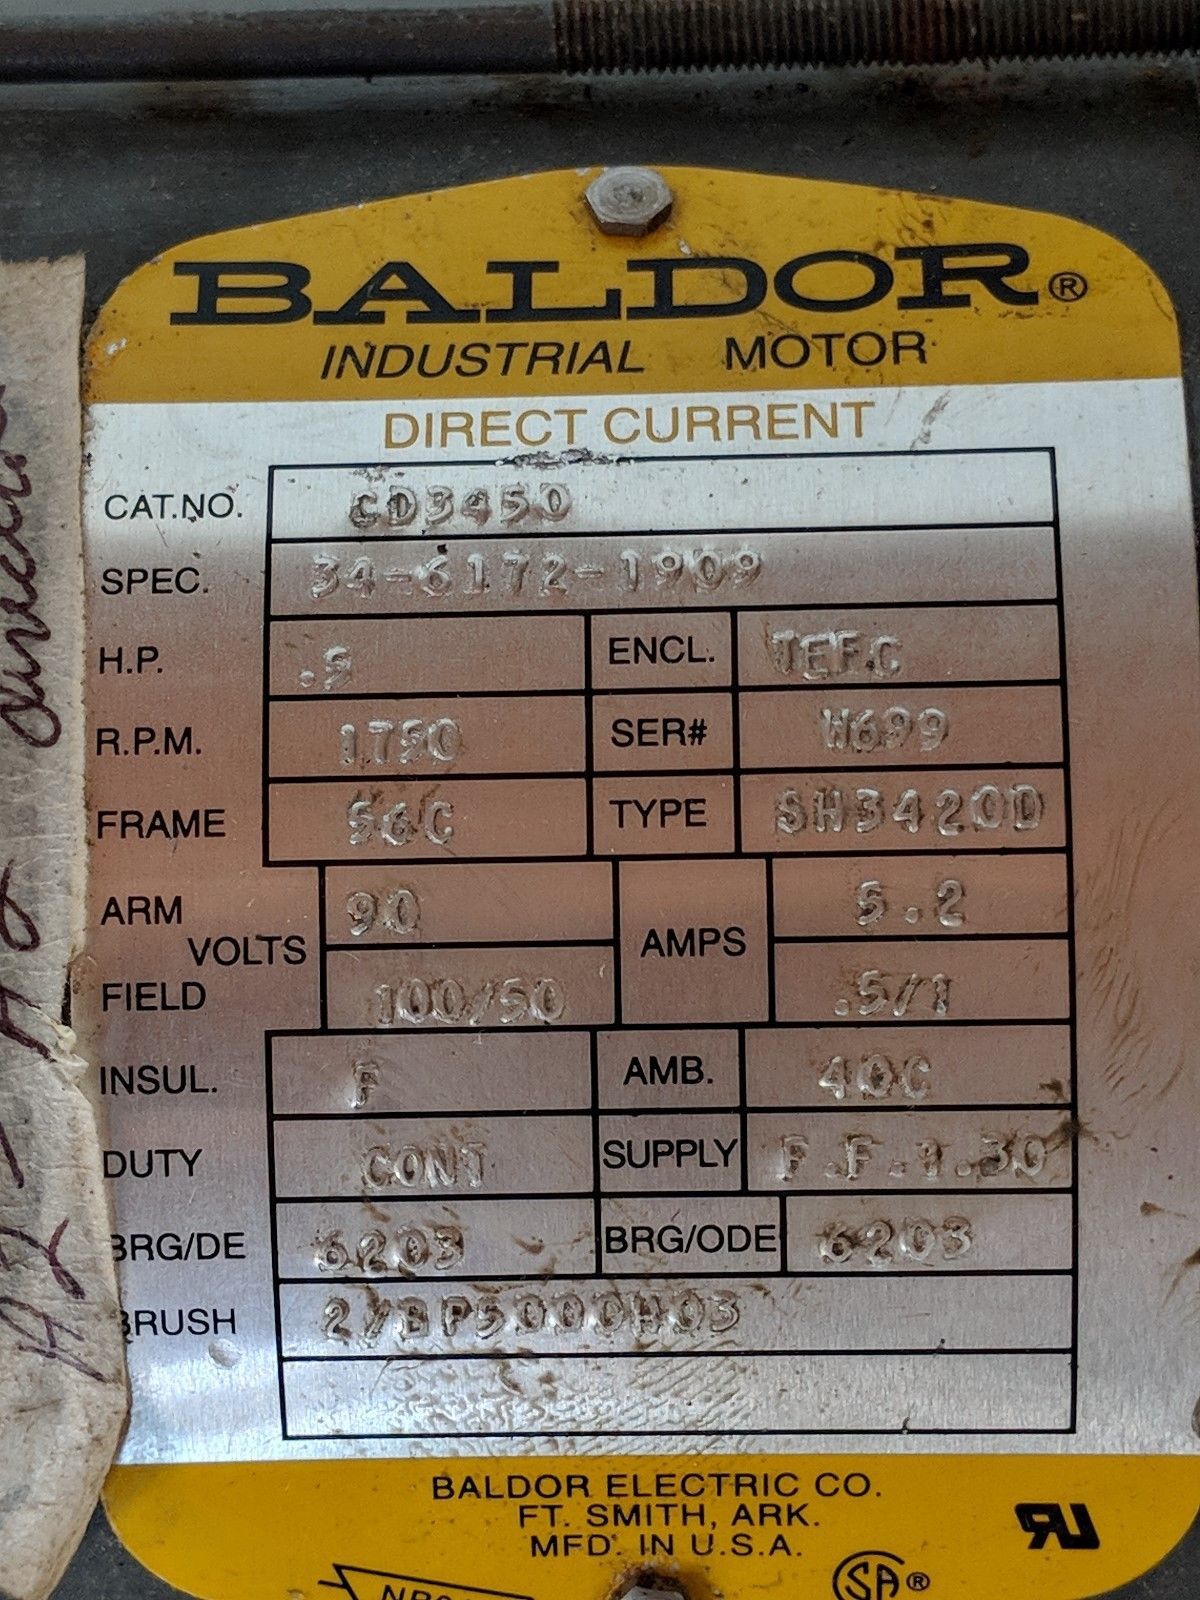 BALDOR®
INDUSTRIAL MOTOR
DIRECT CURRENT
CAT.NO. CD3450
SPEC. 34-6172-1909
H.P. .5 ENCL. TEFC
R.P.M. 1750 SER# W699
FRAME 56C TYPE SH3420D
ARM 90 5.2
VOLTS AMPS
FIELD 100/50 .5/1
INSUL. F AMB. 40C
DUTY CONT SUPPLY F.F.1.30
BRG/DE 6203 BRG/ODE 6203
BRUSH 2/BP5000A03
BALDOR ELECTRIC CO.
FT. SMITH, ARK.
MFD. IN U.S.A.
SA®